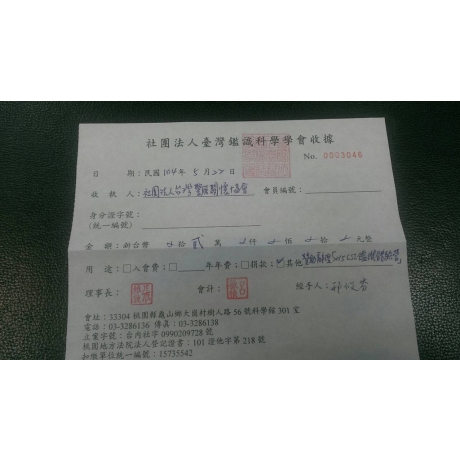 社團法人臺灣鑑識科學學會收據
No. 0003048
日 期：民國104年5月22日
收 款 人：社團法人台灣警友關懷協會 會員編號：
身分證字號：
(統一編號)
金 額：新台幣 拾貳萬 仟 佰 拾 元整
用 途：□入會費；□ 年年費；□捐款；☑其他
理事長： 會計： 經手人：
會址：33304 桃園縣龜山鄉大崗村樹人路 56 號科學館 301 室
電話：03-3286136 傳真：03-3286138
立案字號：台內社字 0990209728 號
桃園地方法院法人登記證書：101 證他字第 218 號
扣繳單位統一編號：15735542